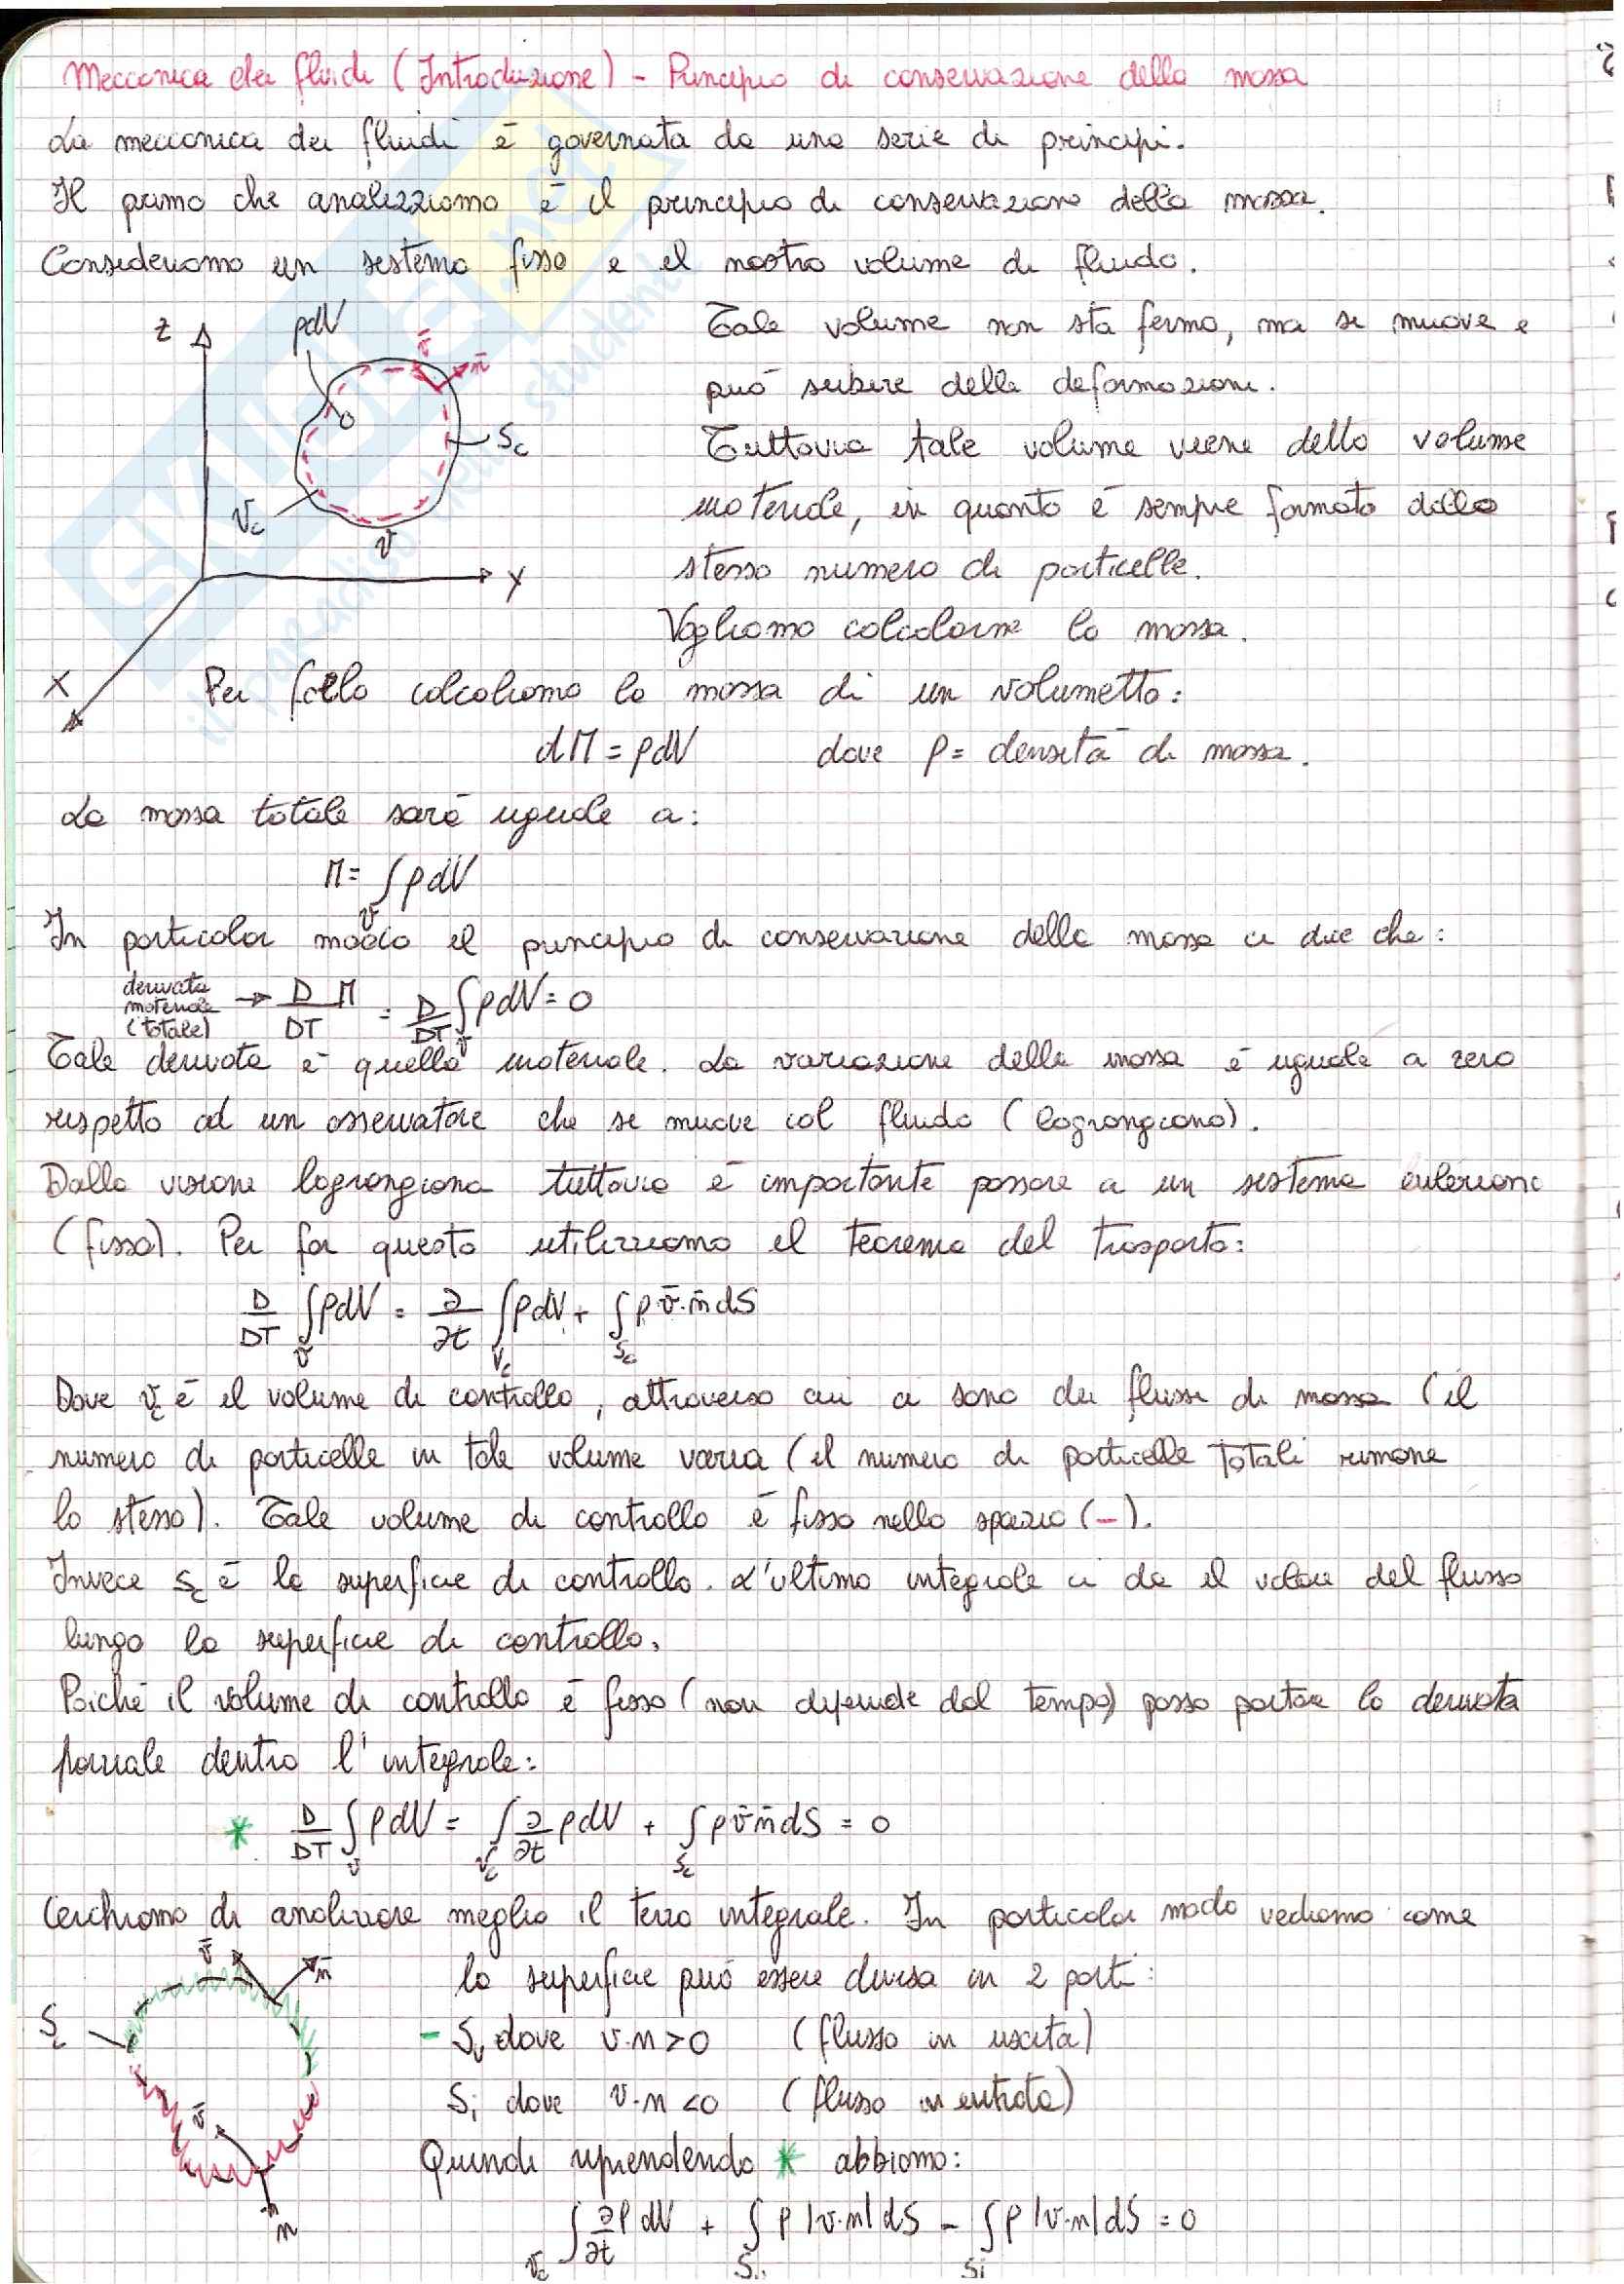 Meccanica dei fluidi (Introduzione) - Principio di conservazione della massa
La meccanica dei fluidi è governata da una serie di principi.
Il primo che analizziamo è il principio di conservazione della massa.
Consideriamo un sistema fisso e il nostro volume di fluido.
z
ρdV
v̄
n̄
Sc
Vc
V
y
x
Tale volume non sta fermo, ma si muove e
può subire delle deformazioni.
Tuttavia tale volume viene detto volume
materiale, in quanto è sempre formato dallo
stesso numero di particelle.
Vogliamo calcolarne la massa.
Per farlo calcoliamo la massa di un volumetto:
dM = ρdV dove ρ = densità di massa.
La massa totale sarà uguale a:
M = ∫V ρdV
In particolar modo il principio di conservazione della massa ci dice che:
derivata materiale (totale) → D/DT M = D/DT ∫V ρdV = 0
Tale derivata è quella materiale. La variazione della massa è uguale a zero
rispetto ad un osservatore che si muove col fluido (lagrangiano).
Dalla visione lagrangiana tuttavia è importante passare a un sistema euleriano
(fisso). Per far questo utilizziamo il teorema del trasporto:
D/DT ∫V ρdV = ∂/∂t ∫Vc ρdV + ∫Sc ρ v̄·n̄ dS
Dove Vc è il volume di controllo, attraverso cui ci sono dei flussi di massa (il
numero di particelle in tale volume varia (il numero di particelle totali rimane
lo stesso). Tale volume di controllo è fisso nello spazio (-).
Invece Sc è la superficie di controllo. L'ultimo integrale ci da il valore del flusso
lungo la superficie di controllo.
Poiché il volume di controllo è fisso (non dipende dal tempo) posso portare la derivata
parziale dentro l'integrale:
* D/DT ∫V ρdV = ∫Vc ∂/∂t ρdV + ∫Sc ρ v̄ n̄ dS = 0
Cerchiamo di analizzare meglio il terzo integrale. In particolar modo vediamo come
la superficie può essere divisa in 2 parti:
v̄
n̄
Sc
v̄
n
- Su dove v·n > 0 (flusso in uscita)
Si dove v·n < 0 (flusso in entrata)
Quindi riprendendo * abbiamo:
∫Vc ∂ρ/∂t dV + ∫Su ρ |v·n| dS - ∫Si ρ |v·n| dS = 0
SKUOLA.net
il paradiso dello studente